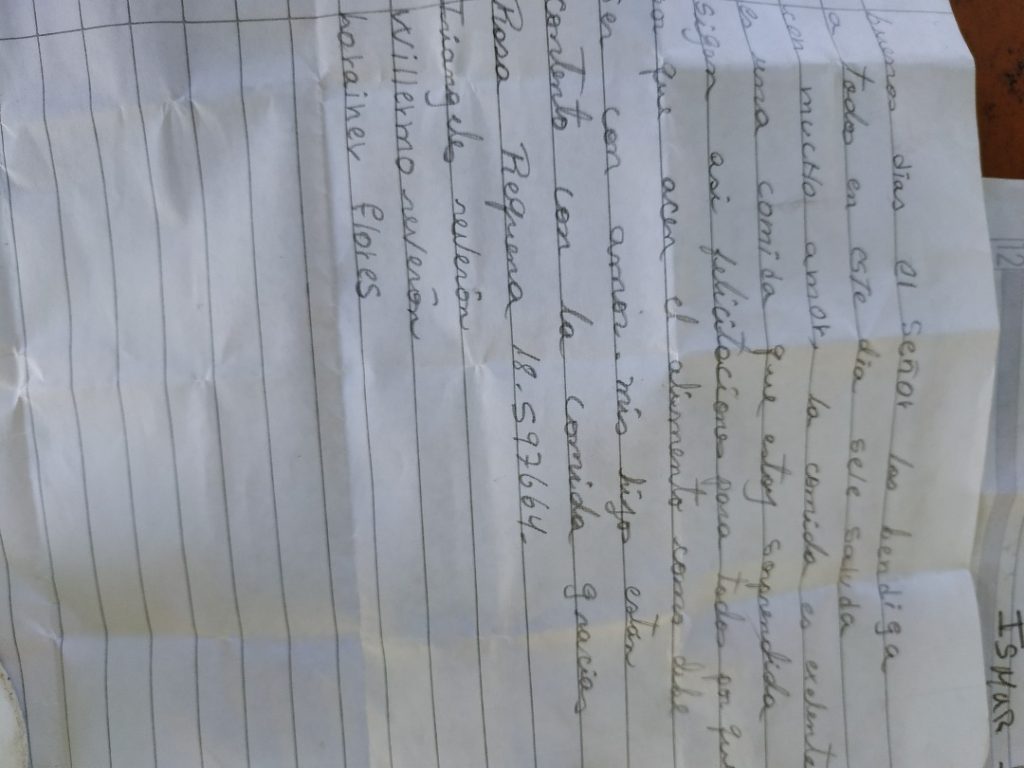 buenos dias el señor los bendiga
a todo en este dia sele saluda
con mucho amor la comida es exelente
es una comida que estoy sorprendida
sigan asi felicitaciones para todos por que
lo que acen el alimento como debe
ser con amor mis hijo estan
contento con la comida gracias
Rosa Requena 18.597664.
Triangelo
Williermo
hohainer flores
12
ISMAR